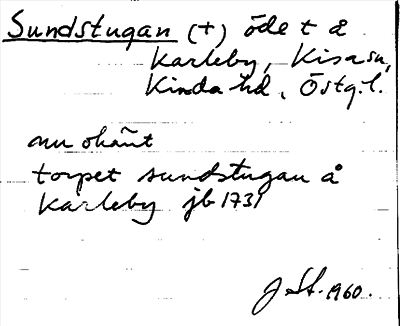 Sundstugan (+) öde t å
Karleby, Kisa sn,
Kinda hd, Östg.l.
nu okänt
torpet sundstugan å
Karleby jb 1731
J. St. 1960.